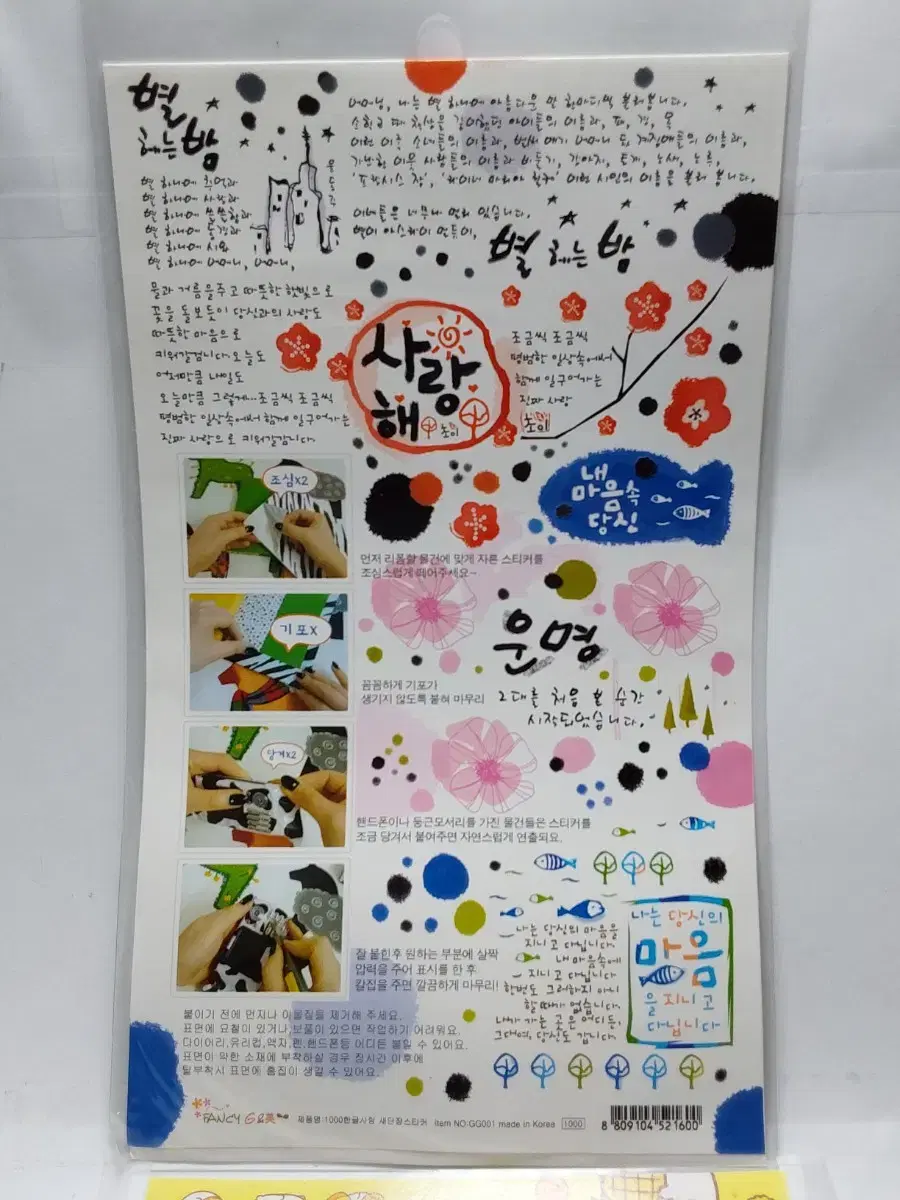 별
헤는 밤
어머님, 나는 별 하나에 아름다운 말 한마디씩 불러봅니다.
소학교 때 책상을 같이했던 아이들의 이름과, 패, 경, 옥
이런 이국 소녀들의 이름과, 벌써 애기 어머니 된 계집애들의 이름과,
가난한 이웃 사람들의 이름과 비둘기, 강아지, 토끼, 노새, 노루,
이런 시인의 이름을 불러 봅니다.
별 하나에 추억과
별 하나에 사랑과
별 하나에 쓸쓸함과
별 하나에 동경과
별 하나에 시와
별 하나에 어머니, 어머니,
윤동주
이네들은 너무나 멀리 있습니다.
별이 아스라이 멀듯이,
별 헤는 밤
물과 거름을주고 따뜻한 햇빛으로
꽃을 돌보듯이 당신과의 사랑도
따뜻한 마음으로
키워갈겁니다 오늘도
어제만큼 내일도
오늘만큼 그렇게...조금씩 조금씩
평범한 일상속에서 함께 일구어가는
진짜 사랑으로 키워갈겁니다.
사랑
해
조금씩 조금씩
평범한 일상속에서
함께 일구어가는
진짜 사랑
내
마음속
당신
조심X2
먼저 리폼할 물건에 맞게 자른 스티커를
조심스럽게 떼어주세요~
운명
그대를 처음 본 순간
시작되었습니다.
기포X
꼼꼼하게 기포가
생기지 않도록 붙혀 마무리
당겨X2
핸드폰이나 둥근모서리를 가진 물건들은 스티커를
조금 당겨서 붙여주면 자연스럽게 연출되요.
잘 붙힌후 원하는 부분에 살짝
압력을 주어 표시를 한 후
칼집을 주면 깔끔하게 마무리!
나는 당신의 마음을
지니고 다닙니다.
내 마음속에
지니고 다닙니다
한번도 그러하지 아니
할 때가 없습니다.
내가 가는 곳은 어디든,
그대여, 당신도 갑니다.
나는 당신의
마음
을 지니고
다닙니다
붙이기 전에 먼지나 이물질을 제거해 주세요.
표면에 요철이 있거나,보풀이 있으면 작업하기 어려워요.
다이어리,유리컵,액자,펜,핸드폰등 어디든 붙일 수 있어요.
표면이 약한 소재에 부착하실 경우 장시간 이후에
탈부착시 표면에 흠집이 생길 수 있어요.
FANCY
제품명:1000한글사랑 새단장스티커 Item NO-GG001 made in Korea 1000
8 809104 521600